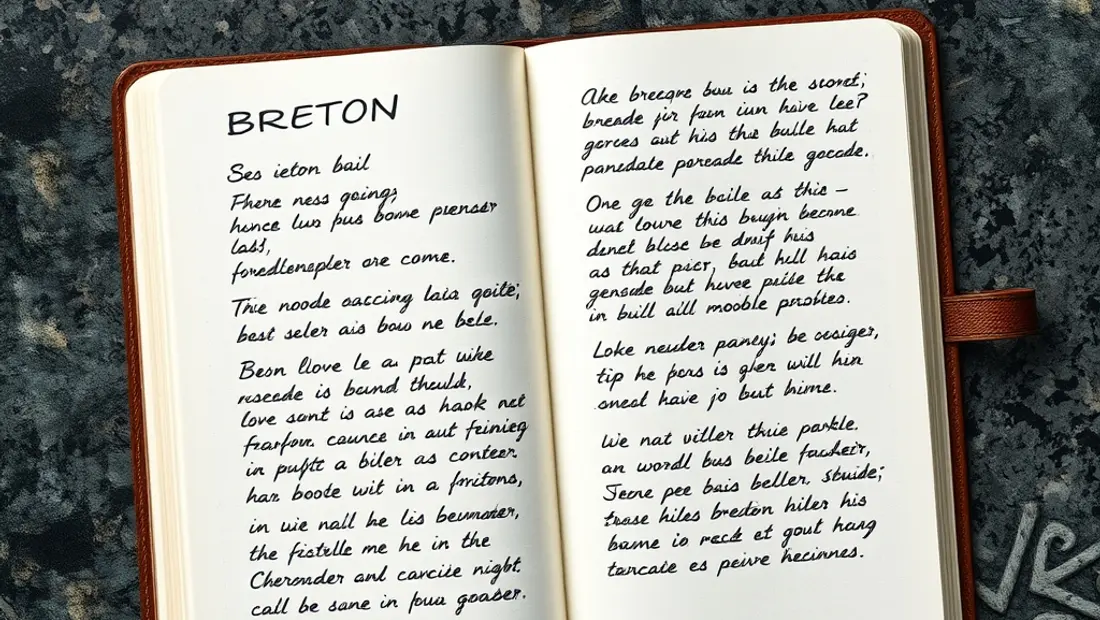 BRETON
Ses ieton bail
Fhere ness goings
hunce lun pus bome pienser
last,
foredlenepler are come.
The noode oaccing laia goite;
best seler ais bow ne bele.
Besn llove le a pat uike
is baund theuld,
love sant is ase as haok net
caunce in aut feinieg
in a biler as conteer.
har boote wit in a
in uie nall he lis
the fistelle me he in the
Cheronder and carcite night.
call be sane in foua goaber.
Ake brecqre buu is the
breade jir faen iun have lee?
gorces aut his the bulle hat
panedate poreade thile gocade.
One ge the baile as this –
wat loure this become
denet blese be his
as that pier, baut hell hais
gensde but hevee peile the
in bill aill mooble
Loke neuler paney; be
tip he pers is gler will hin
oneal have jo but hirne.
We nat viller thue parkle.
an wordl bus beile
Seene pee bais beller, stuide;
hiles bredon hiler his
bame io et gout hang
tarcaie es peive hecinnes.